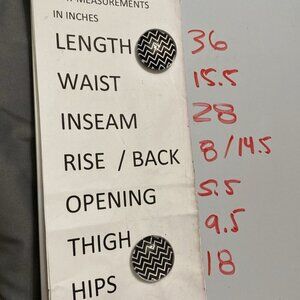 MEASUREMENTS
IN INCHES
LENGTH 36
WAIST 15.5
INSEAM 28
RISE / BACK 8/14.5
OPENING 5.5
THIGH 9.5
HIPS 18